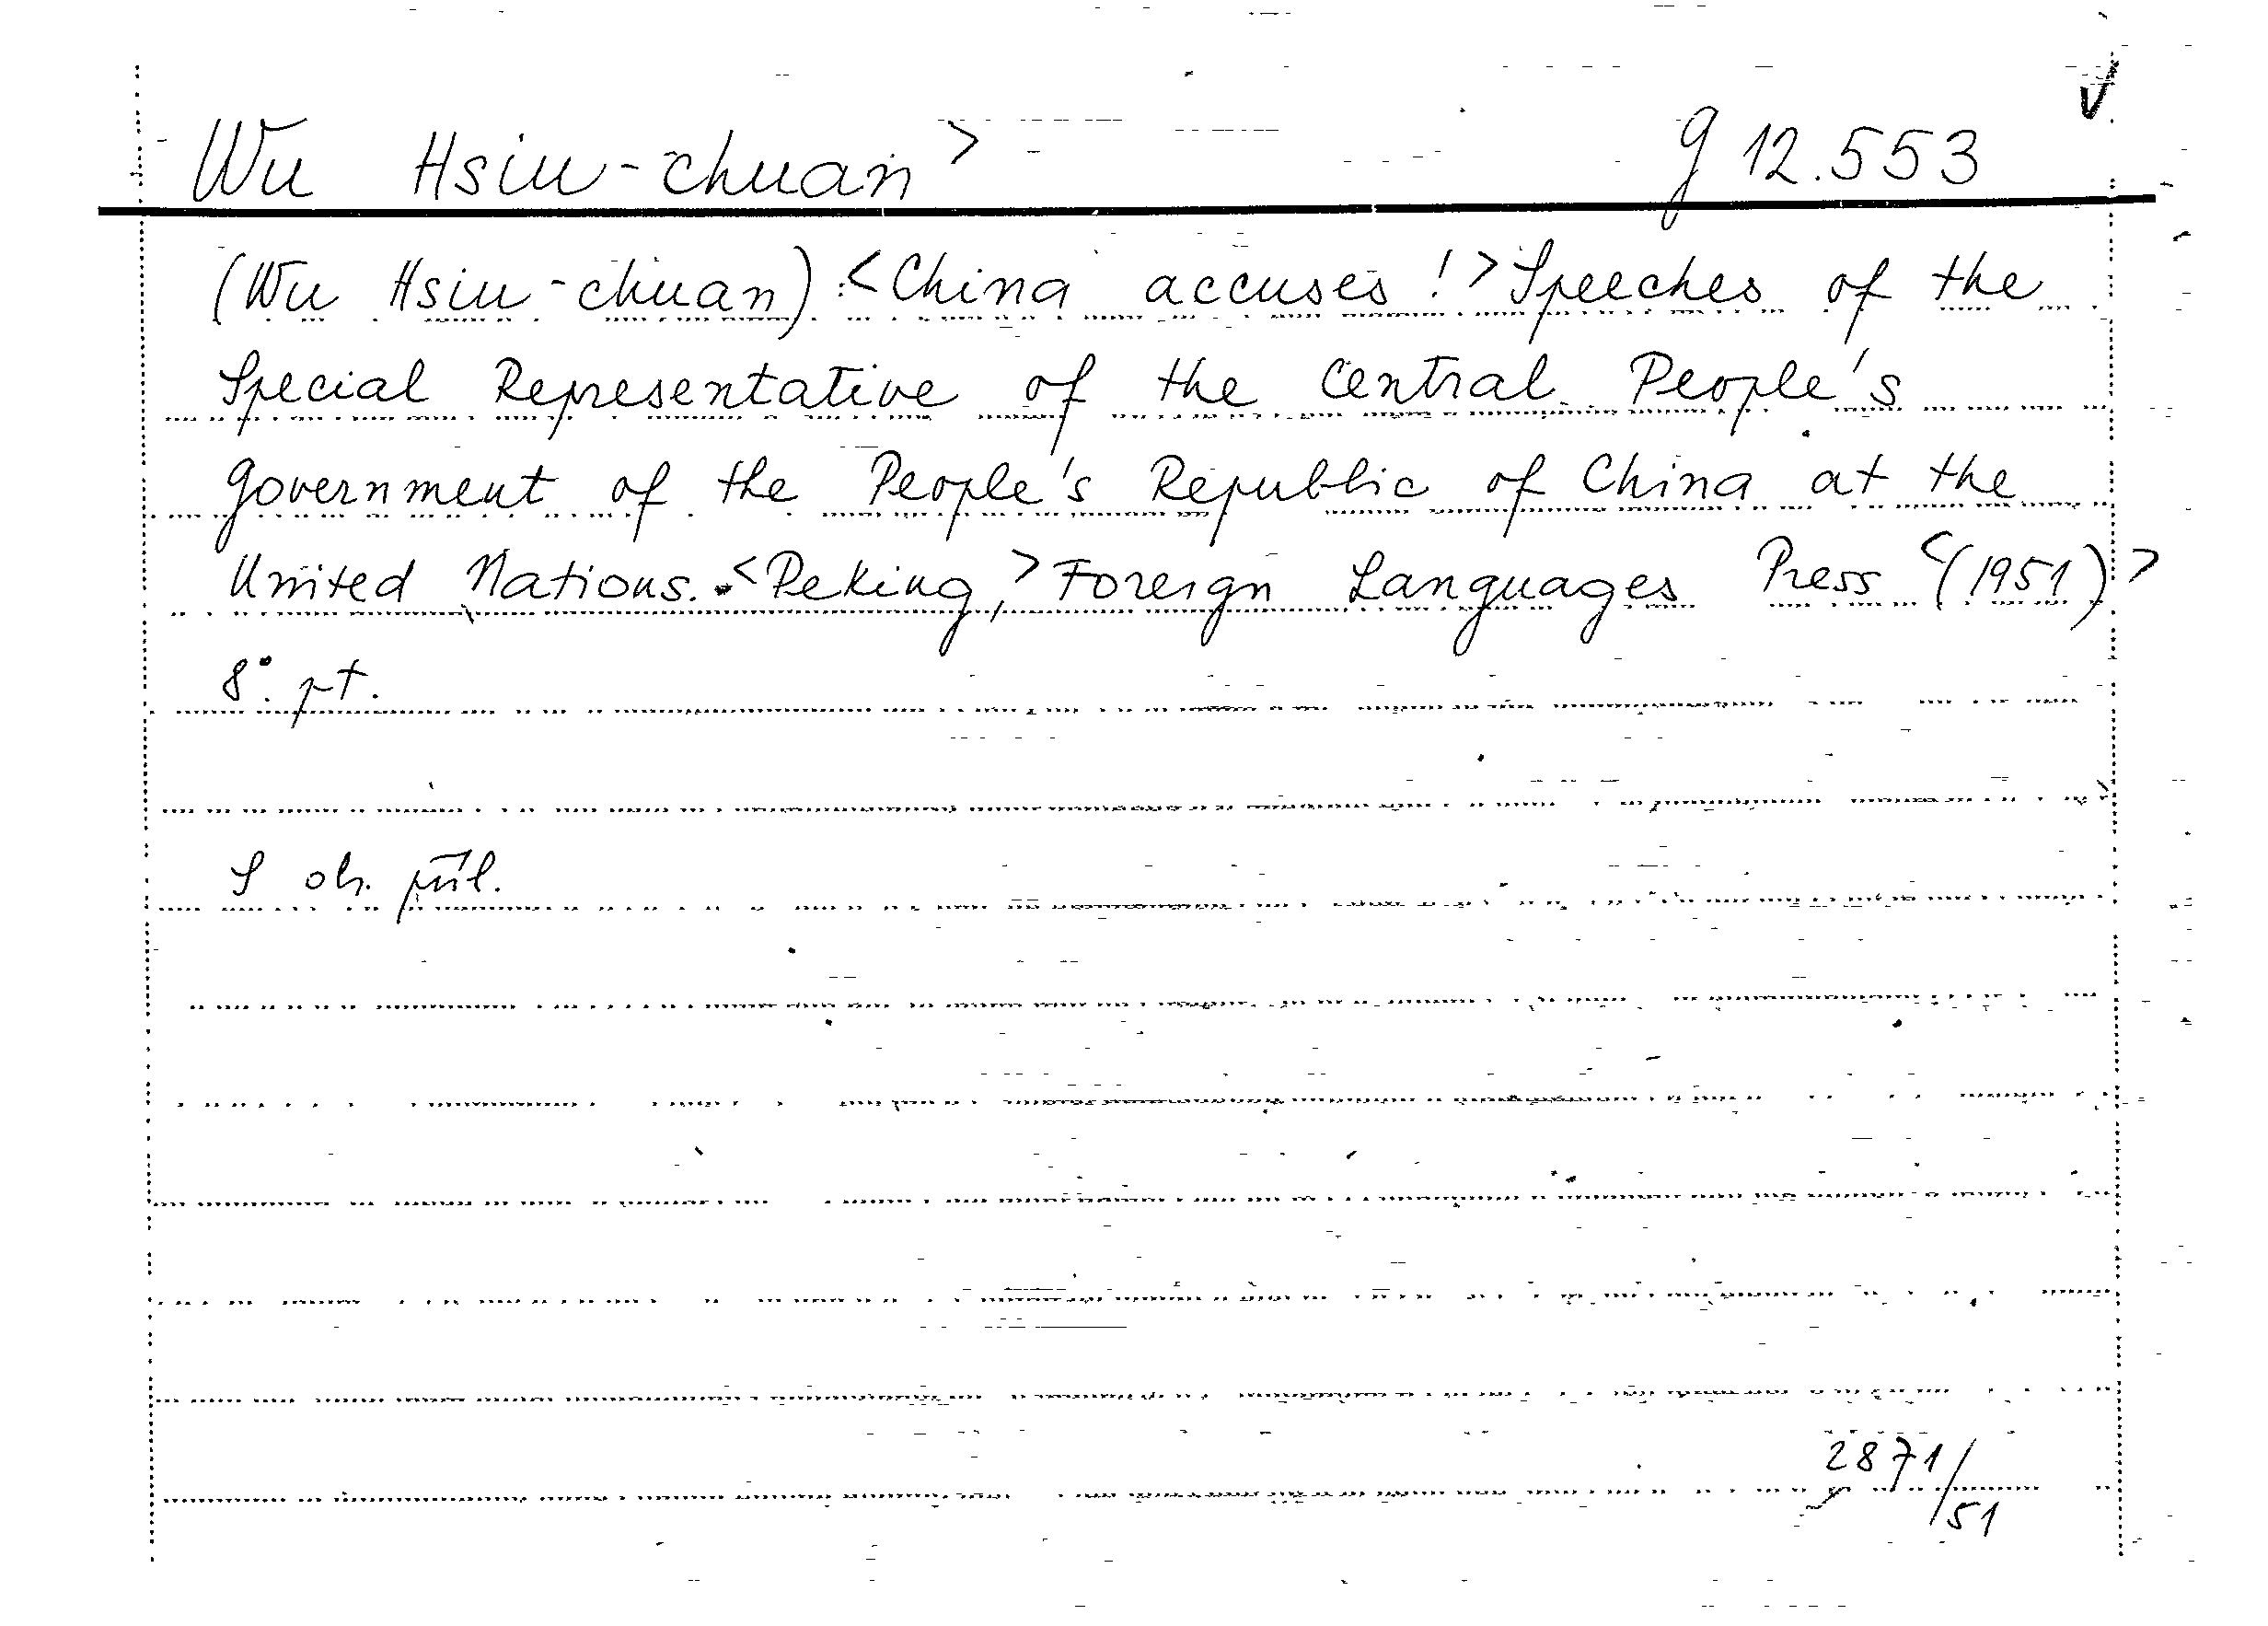 Wu Hsiu-chuan> g 12.553
(Wu Hsiu-chuan): <China accuses!> Speeches of the
Special Representative of the Central People's
government of the People's Republic of China at the
United Nations. <Peking,> Foreign Languages Press <(1951)>
8°. pt.
S ob. příl.
2871/51